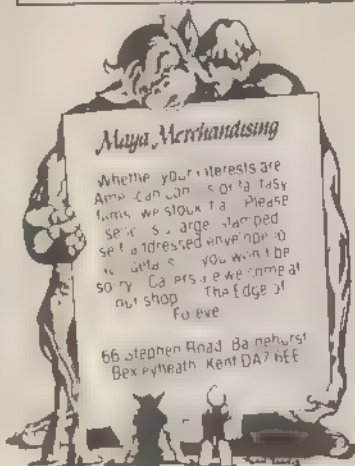 Maya Merchandising
Whether your interests are
American comics or fantasy
films we stock it all. Please
send us a large stamped
self addressed envelope
details you won't be
sorry Callers are welcome at
our shop The Edge of
Forever
66 Stephen Road Barnehurst
Bexleyheath Kent DA7 6EE